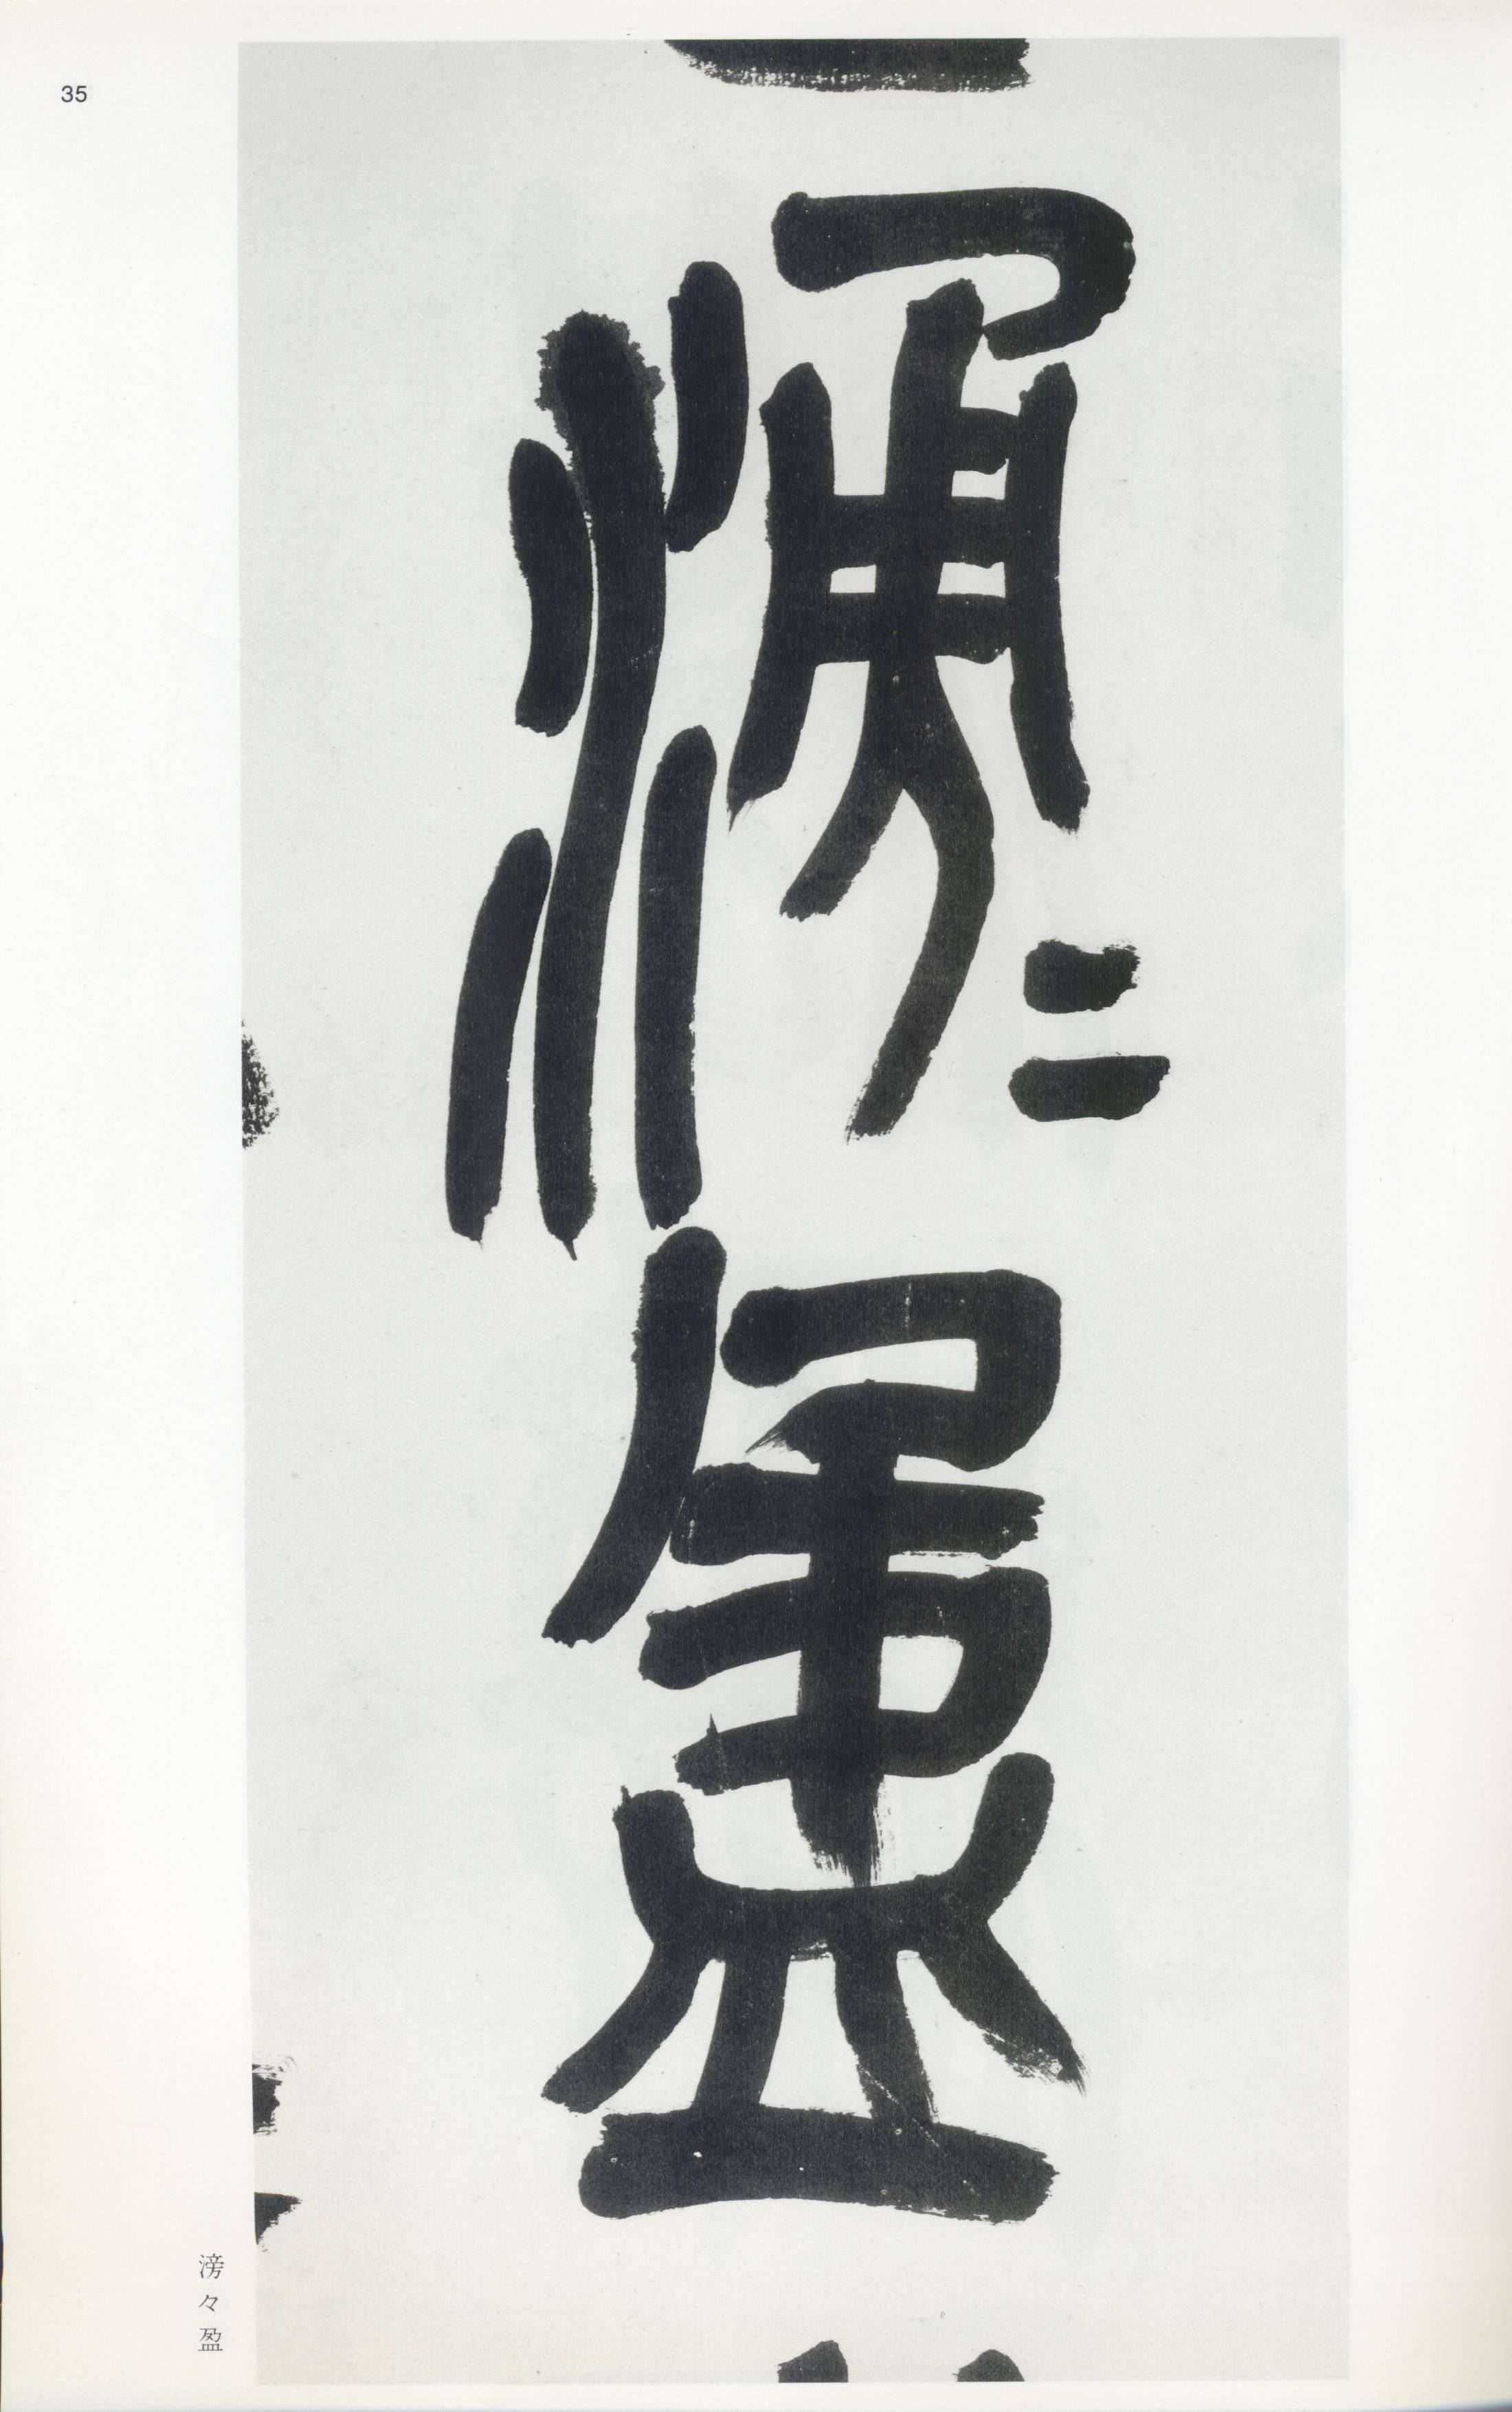 35
滂〻
盈
滂々盈